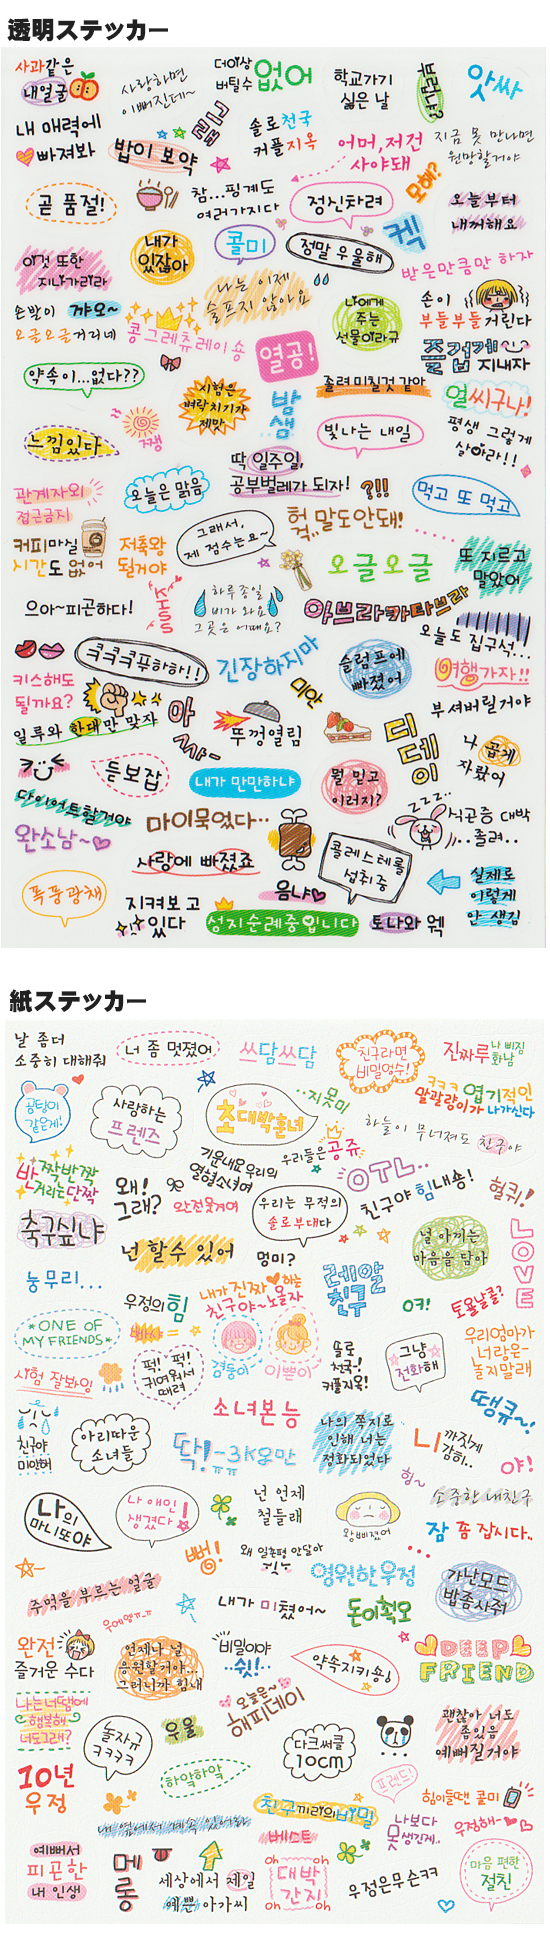 透明ステッカー
사과같은
내얼굴
사랑하면
이뻐진데~
더이상
버틸수 없어
학교가기
싫은 날
부럽냐?
앗싸
내 매력에
빠져봐
밥이 보약
솔로천국
커플지옥
어머, 저건
사야돼
지금 못 만나면
원망할거야
곧 품절!
참...핑계도
여러가지다
정신차려
모해?
오늘부터
내꺼해요
이것 또한
지나가리라
내가
있잖아
콜미
정말 우울해
켁
받은만큼만 하자
손발이 꺄오~
오글오글거리네
콩그레츄레이숑
나는 이제
슬프지 않아요
나에게
주는
선물이라규
손이
부들부들거린다
열공!
즐겁게
지내자
약속이...없다??
시험은
벼락치기가
제맛
밤
샘
졸려미칠것 같아
얼씨구나!
느낌있다
쨍
빛나는 내일
평생 그렇게
살아라!!
딱 일주일,
공부벌레가 되자!
관계자외
접근금지
오늘은 맑음
?!!
먹고 또 먹고
커피마실
시간도 없어
저축왕
될거야
그래서,
제 점수는요~
헉
걱..말도안돼!
오글오글
또 지르고
말았어
으아~피곤하다!
KISS
하루종일
비가 와요
그곳은 어때요?
아브라카타브라
오늘도 집구석...
ㅋㅋㅋㅋ푸하하!!
긴장하지마
슬럼프에
빠졌어
여행가자!!
키스해도
될까요?
미안
부셔버릴거야
일루와 한대만 맞자
아
싸~
뚜껑열림
디데이
나 곱게
자랐어
듣보잡
내가 만만하냐
뭘 믿고
이러지?
다이어트할거야
마이묵었다..
zzz..
식곤증 대박
..졸려..
완소남~
사랑에 빠졌죠
콜레스테롤
섭취중
실제로
이렇게
안 생김
폭풍광채
음냐
지켜보고
있다
성지순례중입니다
토나와 웩
紙ステッカー
날 좀더
소중히 대해줘
너 좀 멋졌어
쓰담쓰담
친구라면
비밀엄수!
진짜루
나 삐짐
화남
곰팅이
같은게!
사랑하는
프렌즈
초대박훈녀
..지못미
ㅋㅋㅋ엽기적인
말괄량이가 나가신다
우리들은 공쥬
하늘이 무너져도 친구야
반짝반짝
거리는 단짝
왜!
그래?
기운내요 우리의
열혈소녀여
완전웃겨여
OTL..
친구야 힘내숑!
헐퀴!
축구싶냐
넌 할수 있어
우리는 무적의
솔로부대다
멍미?
널 아끼는
마음을 담아
LOVE
눙무리...
우정의 힘
내가 진짜 하는
친구야~노올자
레알
친구
오키!
토욜날콜?
*ONE OF
MY FRIENDS*
빠샤=
겸둥이
이쁜이
솔로
천국~!
커플지옥!
그냥
정화해
우리엄마가
너랑은~
놀지말래
시험 잘봐잉
퍽! 퍽!
귀여워서
때려
소녀본능
땡큐~!
친구야
미안혀
아리따운
소녀들
딱!-3ㅋ오만
ㅠㅠ
나의 쪽지로
인해 너는
정화되었다
니까짓게
감히..
야!
나의
마니또야
나 애인
생겼다!
넌 언제
철들래
왕삐졌어
흥~
소중한 내친구
잠 좀 잡시다..
뻐!
영원한우정
가난모드
밥좀사줘
주먹을 부르는 얼굴
우에엥ㅠㅠ
내가 미쳤어~
돈이쵝오
완전
즐거운 수다
언제나 널
응원할거야...
그러니까 힘내
비밀이야
..쉿!..
약속지키숑!
DEEP
FRIEND
나는너땜에
행복해
너도그래?
놀자규
ㅋㅋㅋㅋ
우울
오늘은~
해피데이
다크써클
10cm
괜찮아 너도
좀있음
예뻐질거야
10년
우정
하악하악
프렌드!
힘이들땐 콜미
내 옆에서 계속 있어줘
친구끼리의 비밀
베스트
나보다
못생긴게..
우정해~
예뻐서
피곤한
내 인생
메롱
세상에서 제일
예쁜 아가씨
oh oh
대박
간지
oh oh
우정은무슨ㅋㅋ
마음 편한
절친